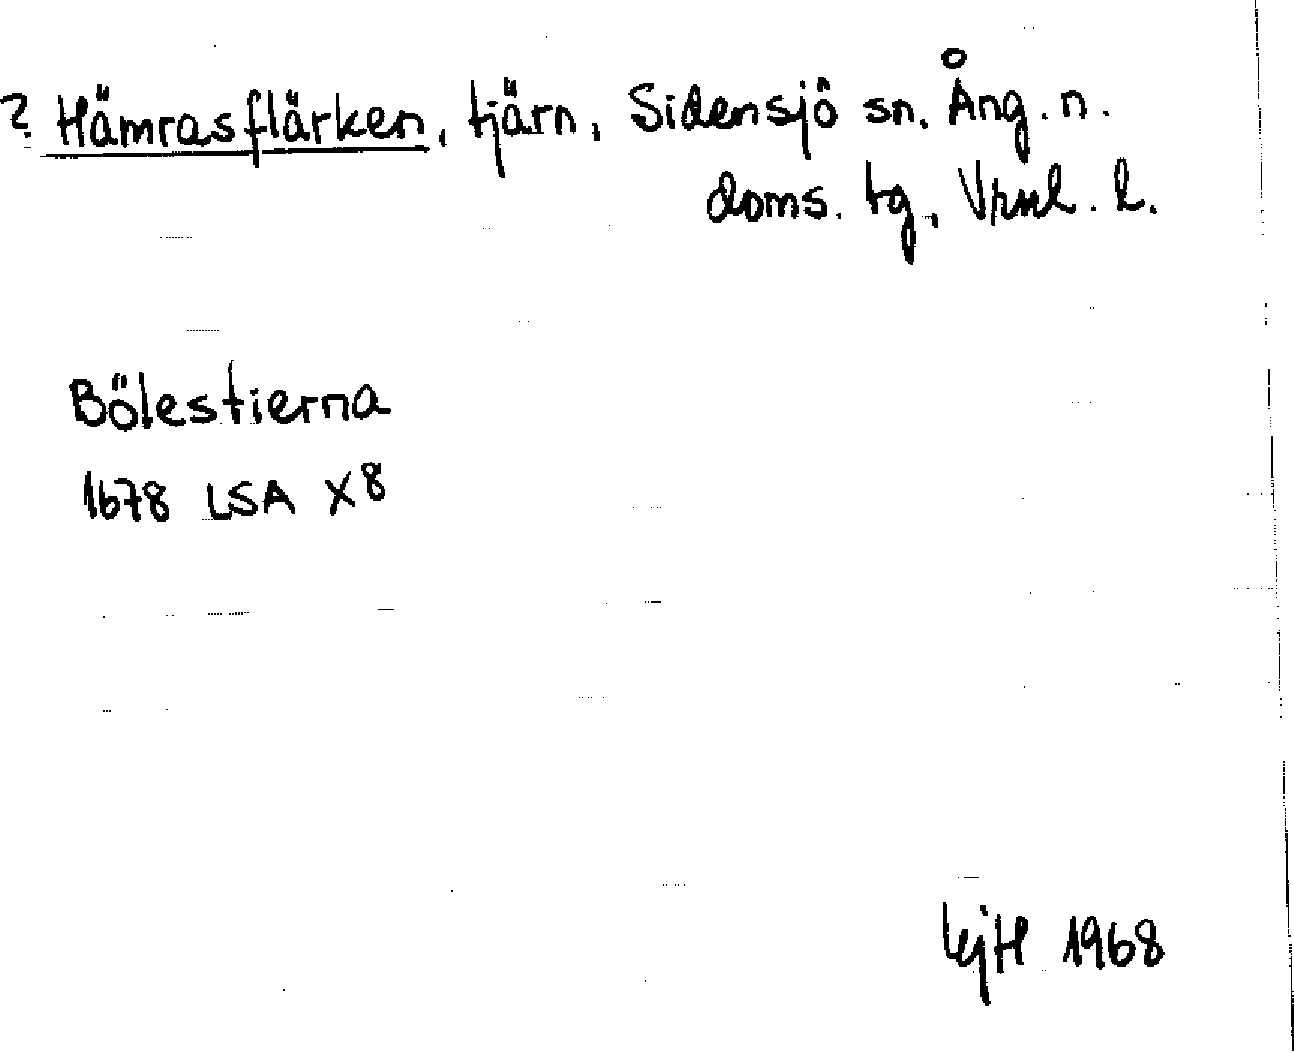 ? Hämrasflärken, tjärn, Sidensjö sn. Ång. n.
doms. tg, Vrnl. l.
Bölestierna
1678 LSA X8
LejH 1968